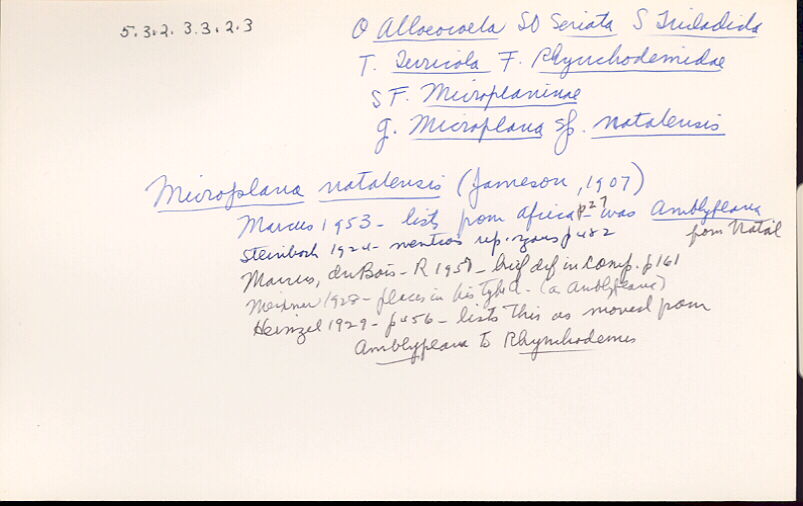 5.3.2.3.3.2.3
O Alloeocoela SO Seriata S Tricladida
T. Terricola F. Rhynchodemidae
SF. Microplaninae
g. Microplana sp. natalensis
Microplana natalensis (Jameson, 1907)
Marcus 1953 - lists from africa p27 - was Amblyplana
from Natal
Steinboch 1924 - mentions rep. organs p 482
Marcus, du Bois-R 1958 - brief def in comp. p 161
Meixner 1928 - places in his type a. (a Amblyplana)
Heinzel 1929 - p456 - lists this as moved from
Amblyplana to Rhynchodemus